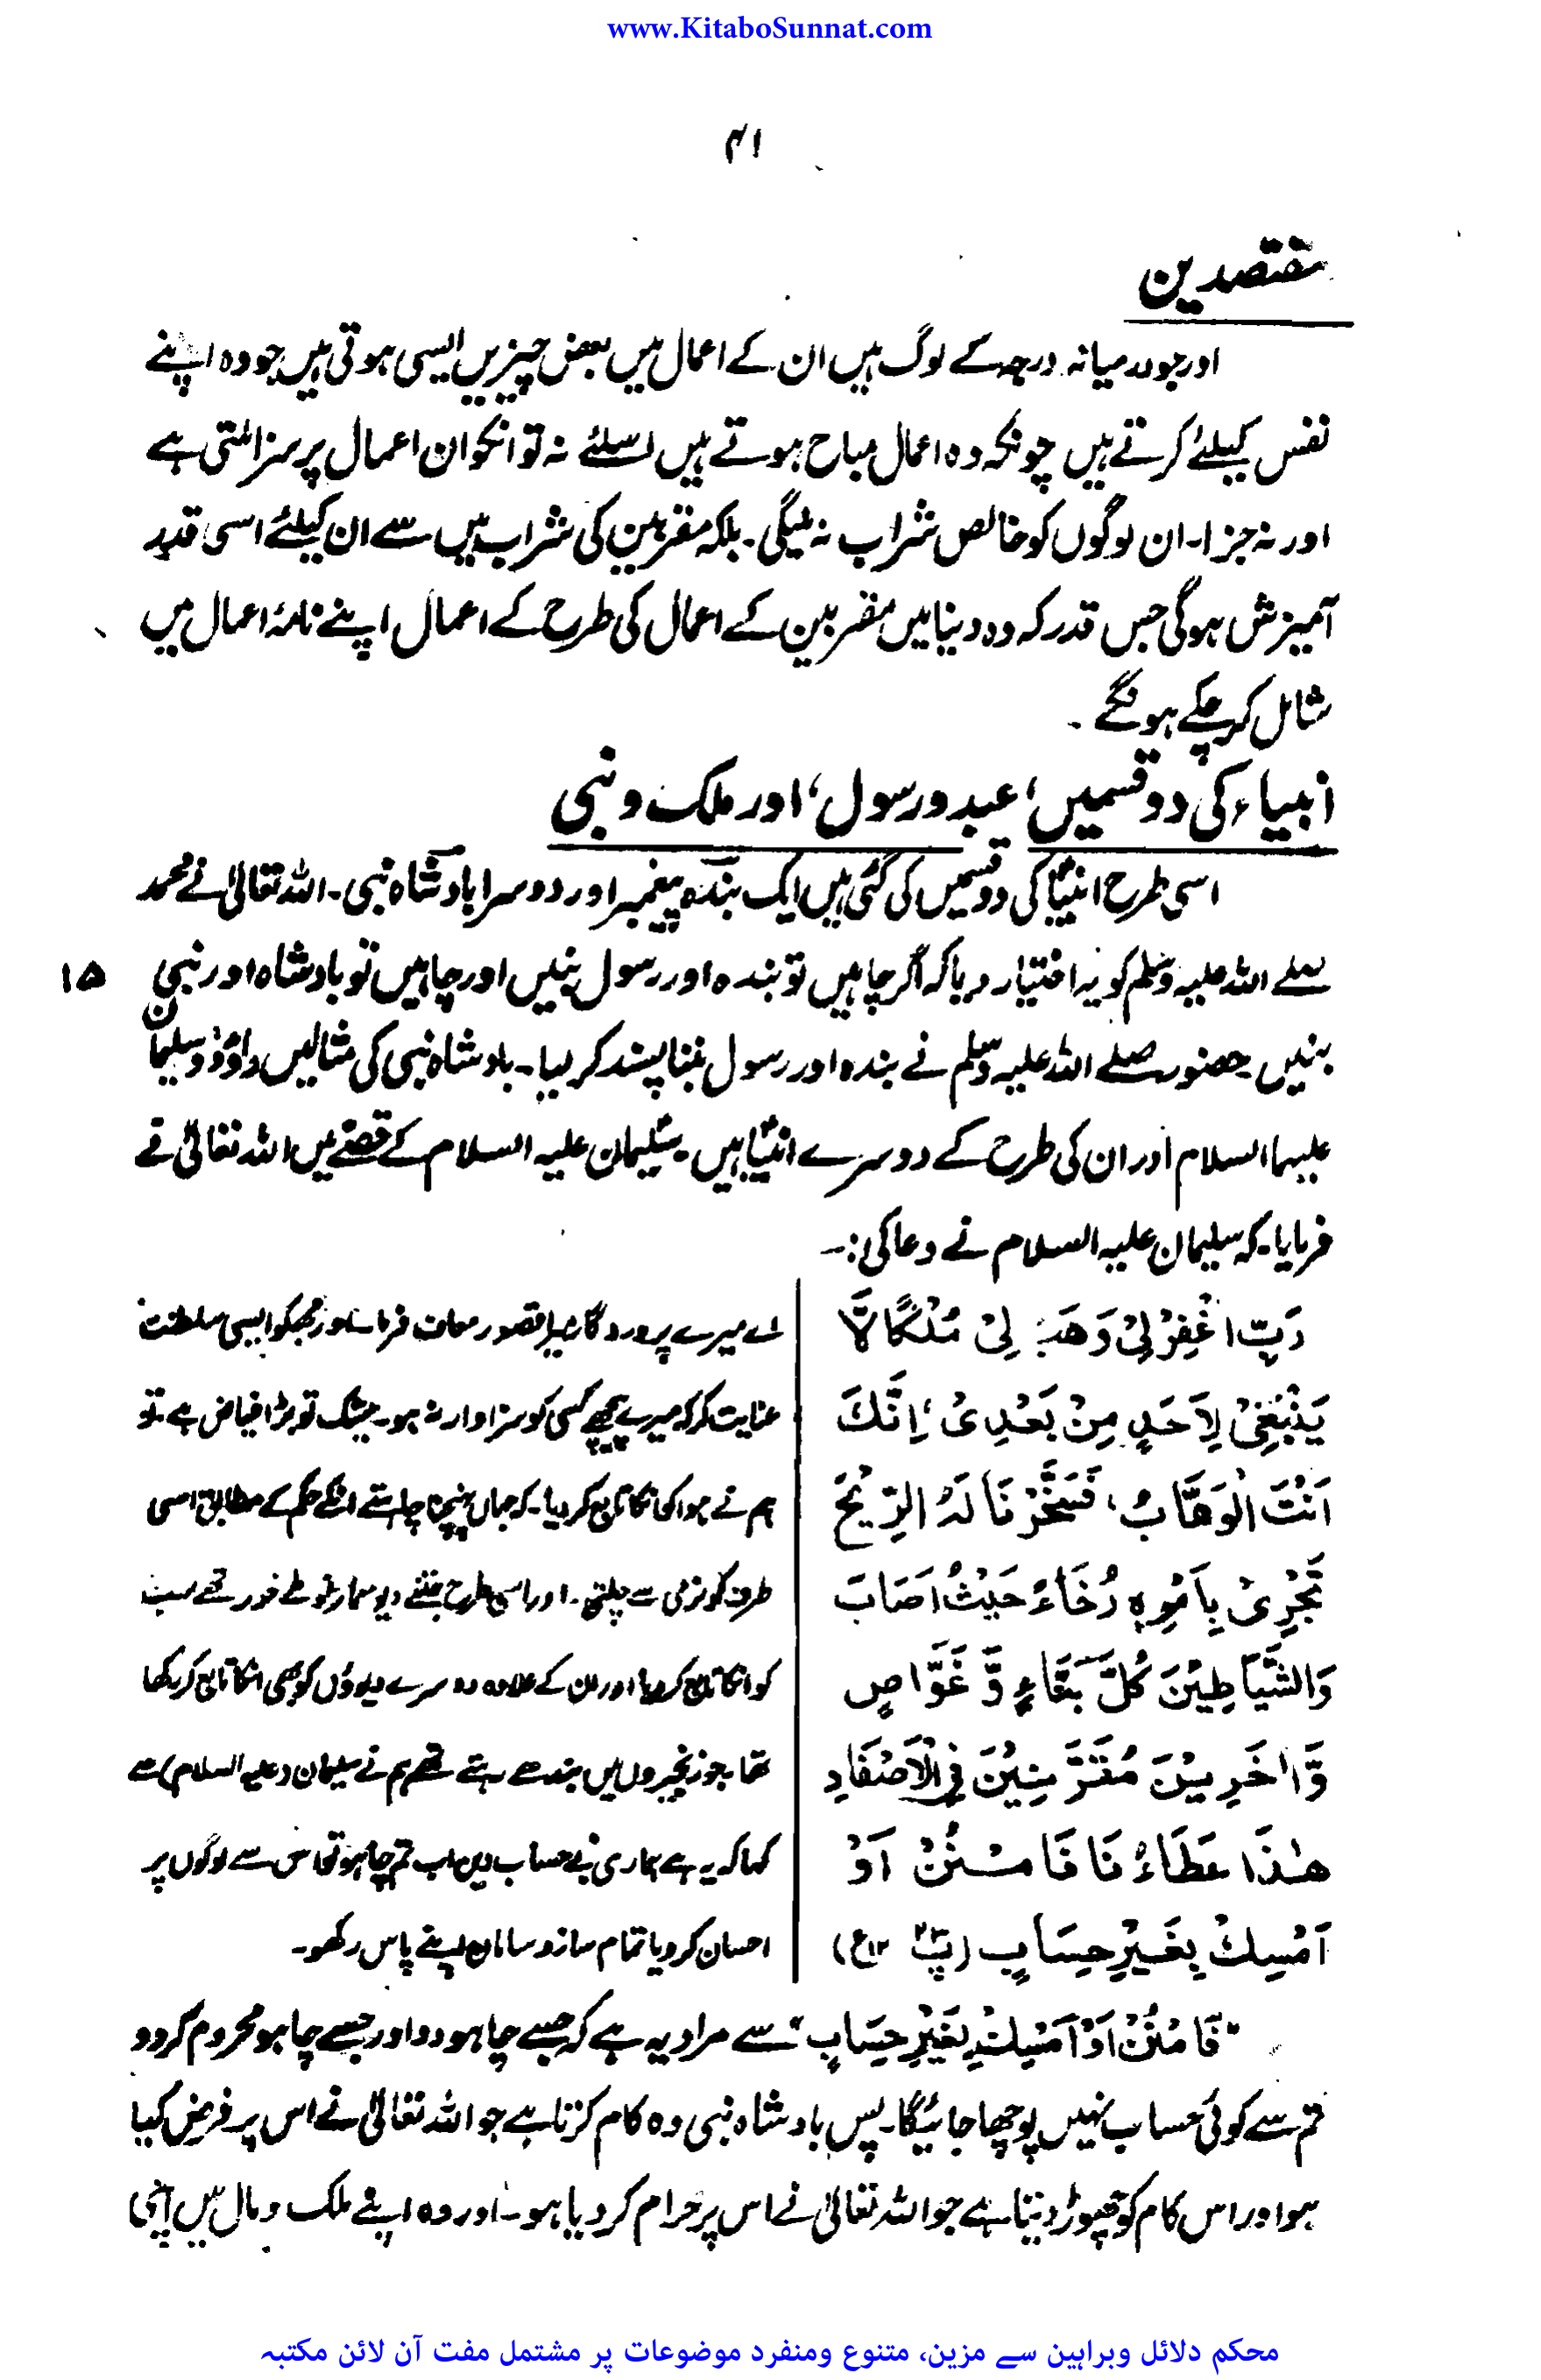 www.KitaboSunnat.com
۴۱
مقتصدین
اور جو درمیانہ درجہ کے لوگ ہیں ان کے اعمال میں بعض چیزیں ایسی ہوتی ہیں جو وہ اپنے
نفس کیلئے کرتے ہیں چونکہ وہ اعمال مباح ہوتے ہیں اسلئے نہ تو انکو ان اعمال پر سزا ملتی ہے
اور نہ جزا۔ ان لوگوں کو خالص شراب نہ ملیگی۔ بلکہ مقربین کی شراب میں سے ان کیلئے اسی قدر
آمیزش ہوگی جس قدر کہ وہ دنیا میں مقربین کے اعمال کی طرح کے اعمال اپنے نامۂ اعمال میں
شامل کر چکے ہونگے۔
انبیاء کی دو قسمیں، عبد و رسول، اور ملک و نبی
اسی طرح انبیاؑ کی دو قسمیں کی گئی ہیں ایک بندہ پیغمبر اور دوسرا بادشاہ نبی۔ اللہ تعالیٰ نے محمد
صلے اللہ علیہ وسلم کو یہ اختیار دیا کہ اگر چاہیں تو بندہ اور رسول بنیں اور چاہیں تو بادشاہ اور نبی
۱۵
بنیں۔ حضور صلے اللہ علیہ وسلم نے بندہ اور رسول بننا پسند کر لیا۔ بادشاہ نبی کی مثالیں داؤد و سلیمان
علیہما السلام اور ان کی طرح کے دوسرے انبیاؑ ہیں۔ سلیمان علیہ السلام کے قصے میں اللہ تعالیٰ نے
فرمایا۔ کہ سلیمان علیہ السلام نے دعا کی:۔
رَبِّ اغْفِرْ لِیْ وَهَبْ لِیْ مُلْكًا لَّا
یَنْۢبَغِیْ لِاَحَدٍ مِنْ بَعْدِیْ، اِنَّكَ
اَنْتَ الْوَهَّابُ، فَسَخَّرْنَا لَهُ الرِّیْحَ
تَجْرِیْ بِاَمْرِهٖ رُخَآءً حَیْثُ اَصَابَ
وَالشَّیَاطِیْنَ كُلَّ بَنَّآءٍ وَّ غَوَّاصٍ
وَّاٰخَرِیْنَ مُقَرَّنِیْنَ فِی الْاَصْفَادِ
هٰذَا عَطَاءُنَا فَامْنُنْ اَوْ
اَمْسِكْ بِغَیْرِ حِسَابٍ (پ۲۳ ۱۲ع)
اے میرے پروردگار میرا قصور معاف فرما۔ اور مجھکو ایسی سلطنت
عنایت کر کہ میرے پیچھے کسی کو سزاوار نہ ہو۔ بیشک تو بڑا فیاض ہے۔ تو
ہم نے ہوا کو انکا تابع کر دیا۔ کہ جہاں پہنچنا چاہتے انکے حکم کے مطابق اسی
طرف کو نرمی سے چلتی۔ اور اسی طرح جتنے دیو معمار غوطے خور تھے سب
کو انکا تابع کر دیا اور ان کے علاوہ دوسرے دیوؤں کو بھی انکا تابع کر رکھا
تھا۔ جو زنجیروں میں بندھے رہتے تھے ہم نے سلیمان (علیہ السلام) سے
کہا کہ یہ ہے ہماری بے حساب دین اب تم چاہو تو اس سے لوگوں پر
احسان کرو یا تمام ساز و سامان اپنے پاس رکھو۔
"فَامْنُنْ اَوْ اَمْسِكْ بِغَیْرِ حِسَابٍ" سے مراد یہ ہے کہ جسے چاہو دو اور جسے چاہو محروم کر دو
تم سے کوئی حساب نہیں پوچھا جائیگا۔ پس بادشاہ نبی وہ کام کرتا ہے جو اللہ تعالیٰ نے اس پر فرض کیا
ہو اور اس کام کو چھوڑ دیتا ہے جو اللہ تعالیٰ نے اس پر حرام کر دیا ہو۔ اور وہ اپنے ملک و مال میں اپنی
محکم دلائل وبراہین سے مزین، متنوع ومنفرد موضوعات پر مشتمل مفت آن لائن مکتبہ